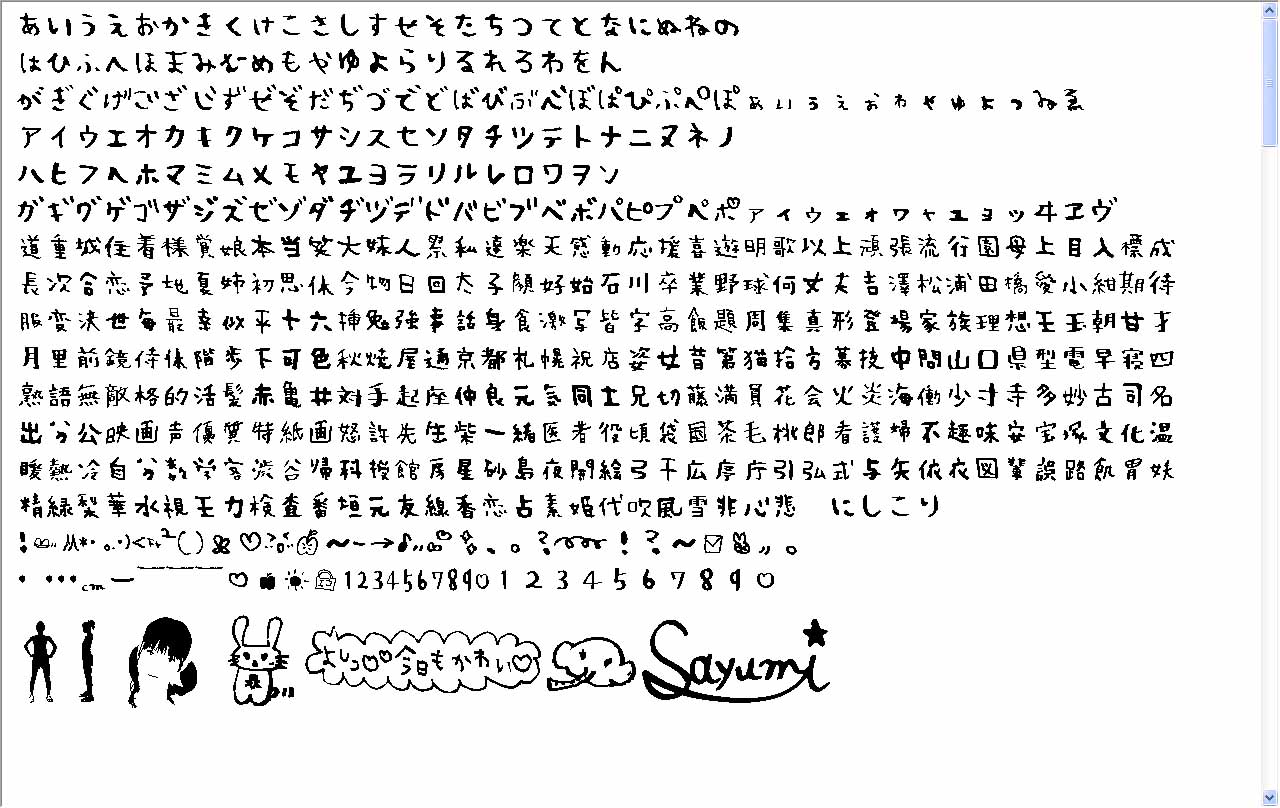 あいうえおかきくけこさしすせそたちつてとなにぬねの
はひふへほまみむめもやゆよらりるれろわをん
がぎぐげござじずぜぞだぢづでどばびぶべぼぱぴぷぺぽぁぃぅぇぉゎゃゅょっゐゑ
アイウエオカキクケコサシスセソタチツテトナニヌネノ
ハヒフヘホマミムメモヤユヨラリルレロワヲン
ガギグゲゴザジズゼゾダヂヅデドバビブベボパピプペポァィゥェォヮャュョッヰヱヴ
道重城住着様賞娘本当笑大妹人祭私達楽天感動応援喜遊明歌以上頑張流行園母上目入標成
長次合恋予地夏姉初思休今物日回太子顔好始石川卒業野球何丈夫吉澤松浦田橋愛小紺期待
服変決世毎最幸似平十六挿勉強事話身食激写皆字高飯題周集真形登場家族理想王玉朝甘才
月里前鏡侍体階歩下可色秋焼屋通京都札幌祝店姿女昔第猫拾方募技中間山口県型電早寝四
熟語無敵格的活髪赤亀井対手起座仲良元気同士兄切藤満員花会火炎海働少寸寺多妙古司名
出分公映画声優質特紙画怒許先生柴一緒医者役頃袋國茶毛桃郎者護婦不趣味安室塚文化温
暖熱冷自分数学客渋谷帰科授館房星砂島夜開絵弓干広序庁引弘式与矢依衣図輩誤路飢胃妖
精緑梨華水視王力検査番垣元友線香恋占素姫代吹風雪非心悲 にしこり
1234567890 1 2 3 4 5 6 7 8 9
よしっ♡♡今日もかわいい♡
Sayumi